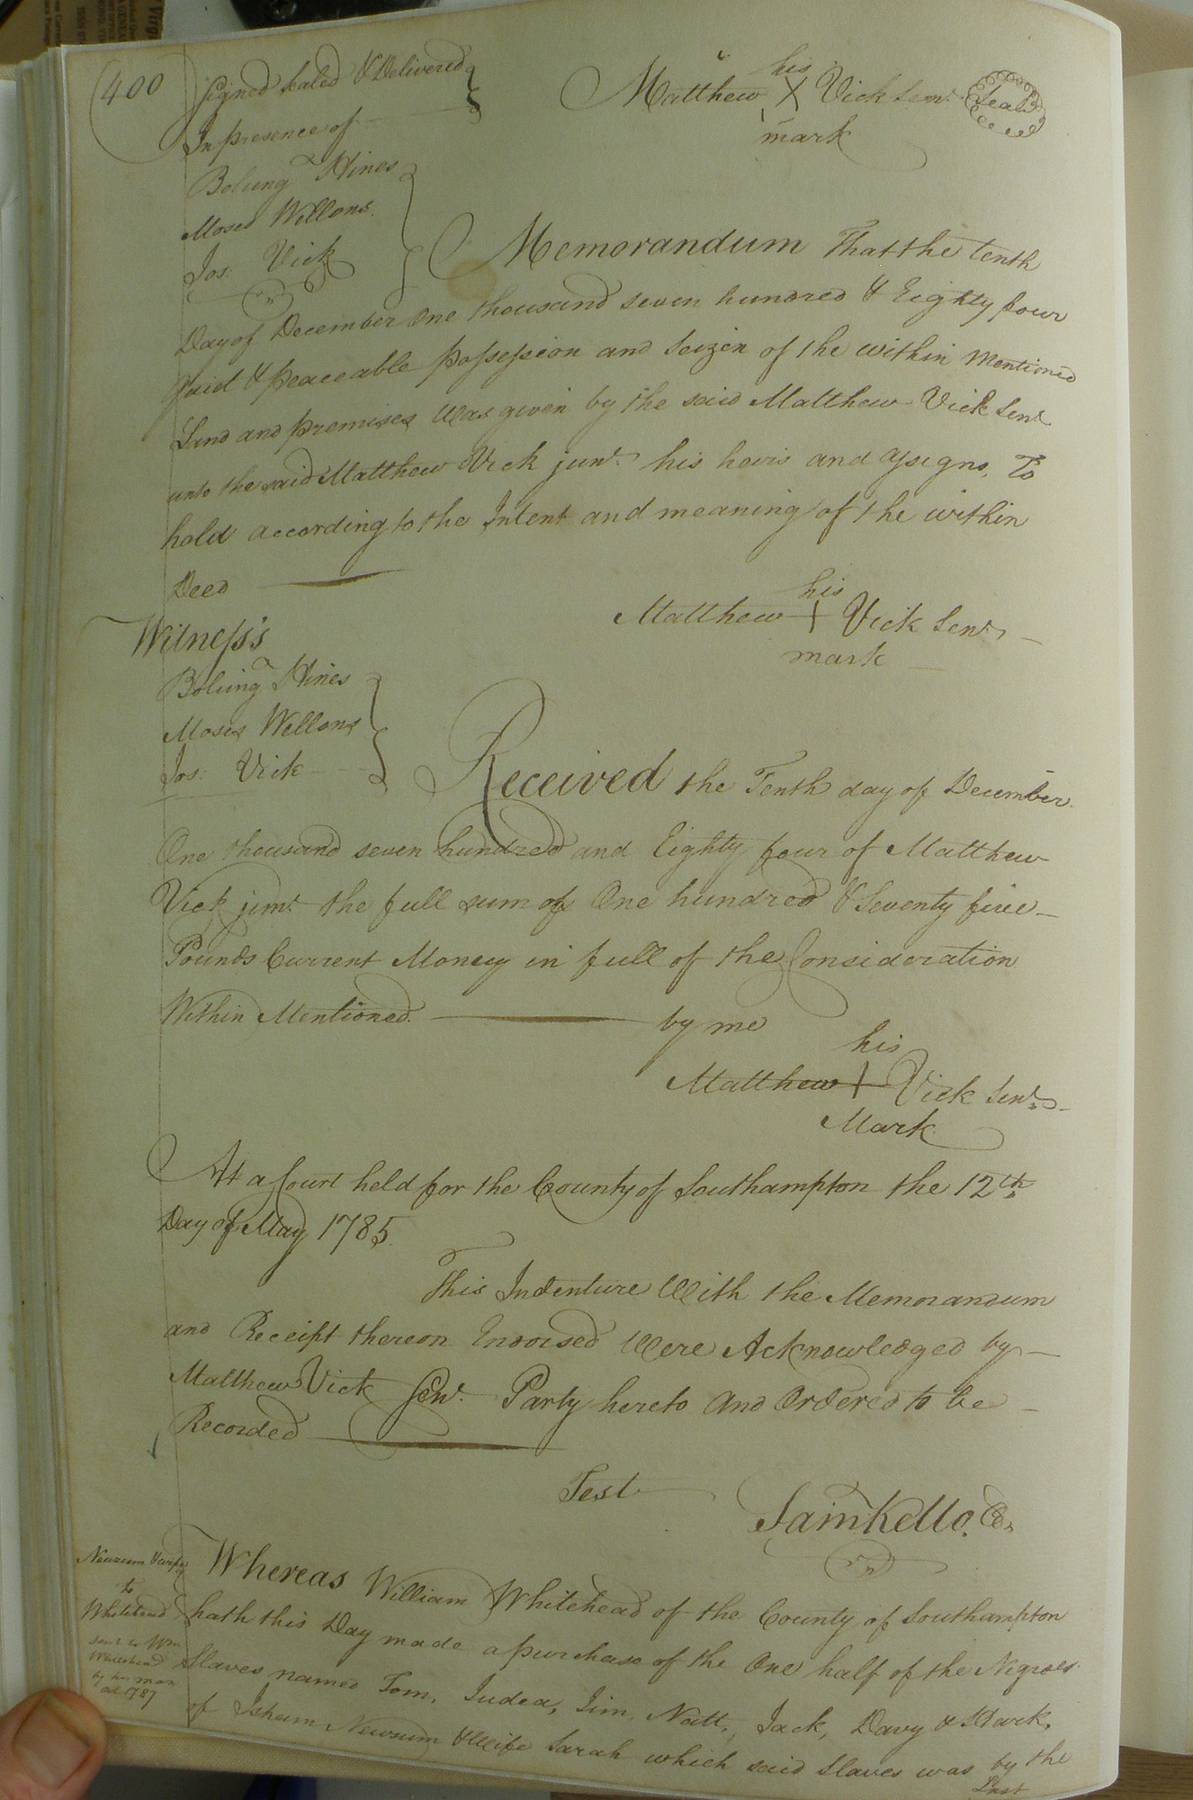 400
Signed Sealed & Delivered
In presence of
Bolling Hines
Moses Wellons.
Jos. Vick
his
Matthew X Vick Senr. Seal
mark
Memorandum That the tenth
Day of December One thousand seven hundred & Eighty four
Quiet & peaceable Possession and Seizen of the within Mentioned
Land and premises Was given by the said Matthew Vick Senr
unto the said Matthew Vick junr. his heirs and assigns, To
hold according to the Intent and meaning of the within
Deed
his
Matthew + Vick Senr
mark
Witness's
Bolling Hines
Moses Wellons
Jos: Vick
Received the Tenth day of December
One thousand seven hundred and Eighty four of Matthew
Vick junr. the full sum of One hundred & Seventy five
Pounds Current Money in full of the Consideration
Within Mentioned. by me
his
Matthew + Vick Senr
Mark
At a Court held for the County of Southampton the 12th
Day of May 1785.
This Indenture With the Memorandum
and Receipt thereon Endorsed Were Acknowledged by
Matthew Vick Senr. Party hereto And Ordered to be
Recorded
Test
Saml Kello. Ck
Newsum & wife
to
Whitehead
sent to Wm
Whitehead
by his man
1787
Whereas William Whitehead of the County of Southampton
hath this Day made a purchase of the One half of the Negroes
Slaves named Tom, Judea, Jim, Natt, Jack, Davy &
of Isham Newsum & Wife Sarah which said Slaves was by the
Last